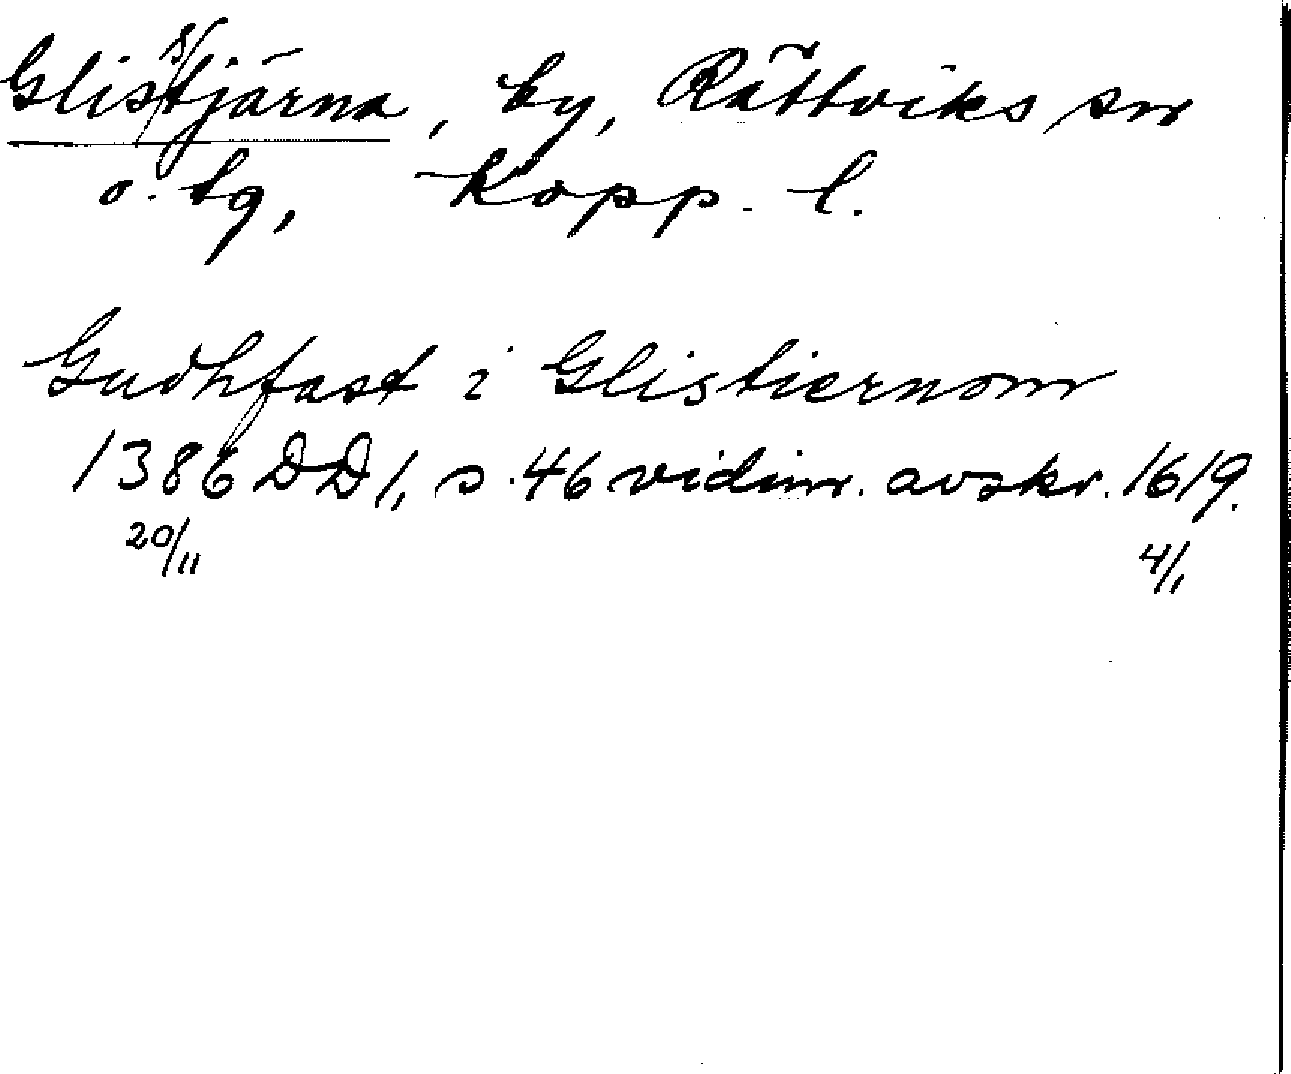 Glisstjärna, by, Rättviks sn
o. tg, Kopp. l.
Gudhfast i Glistiernom
1386 DD 1, s. 46 vidim. avskr. 1619.
20/11 4/1